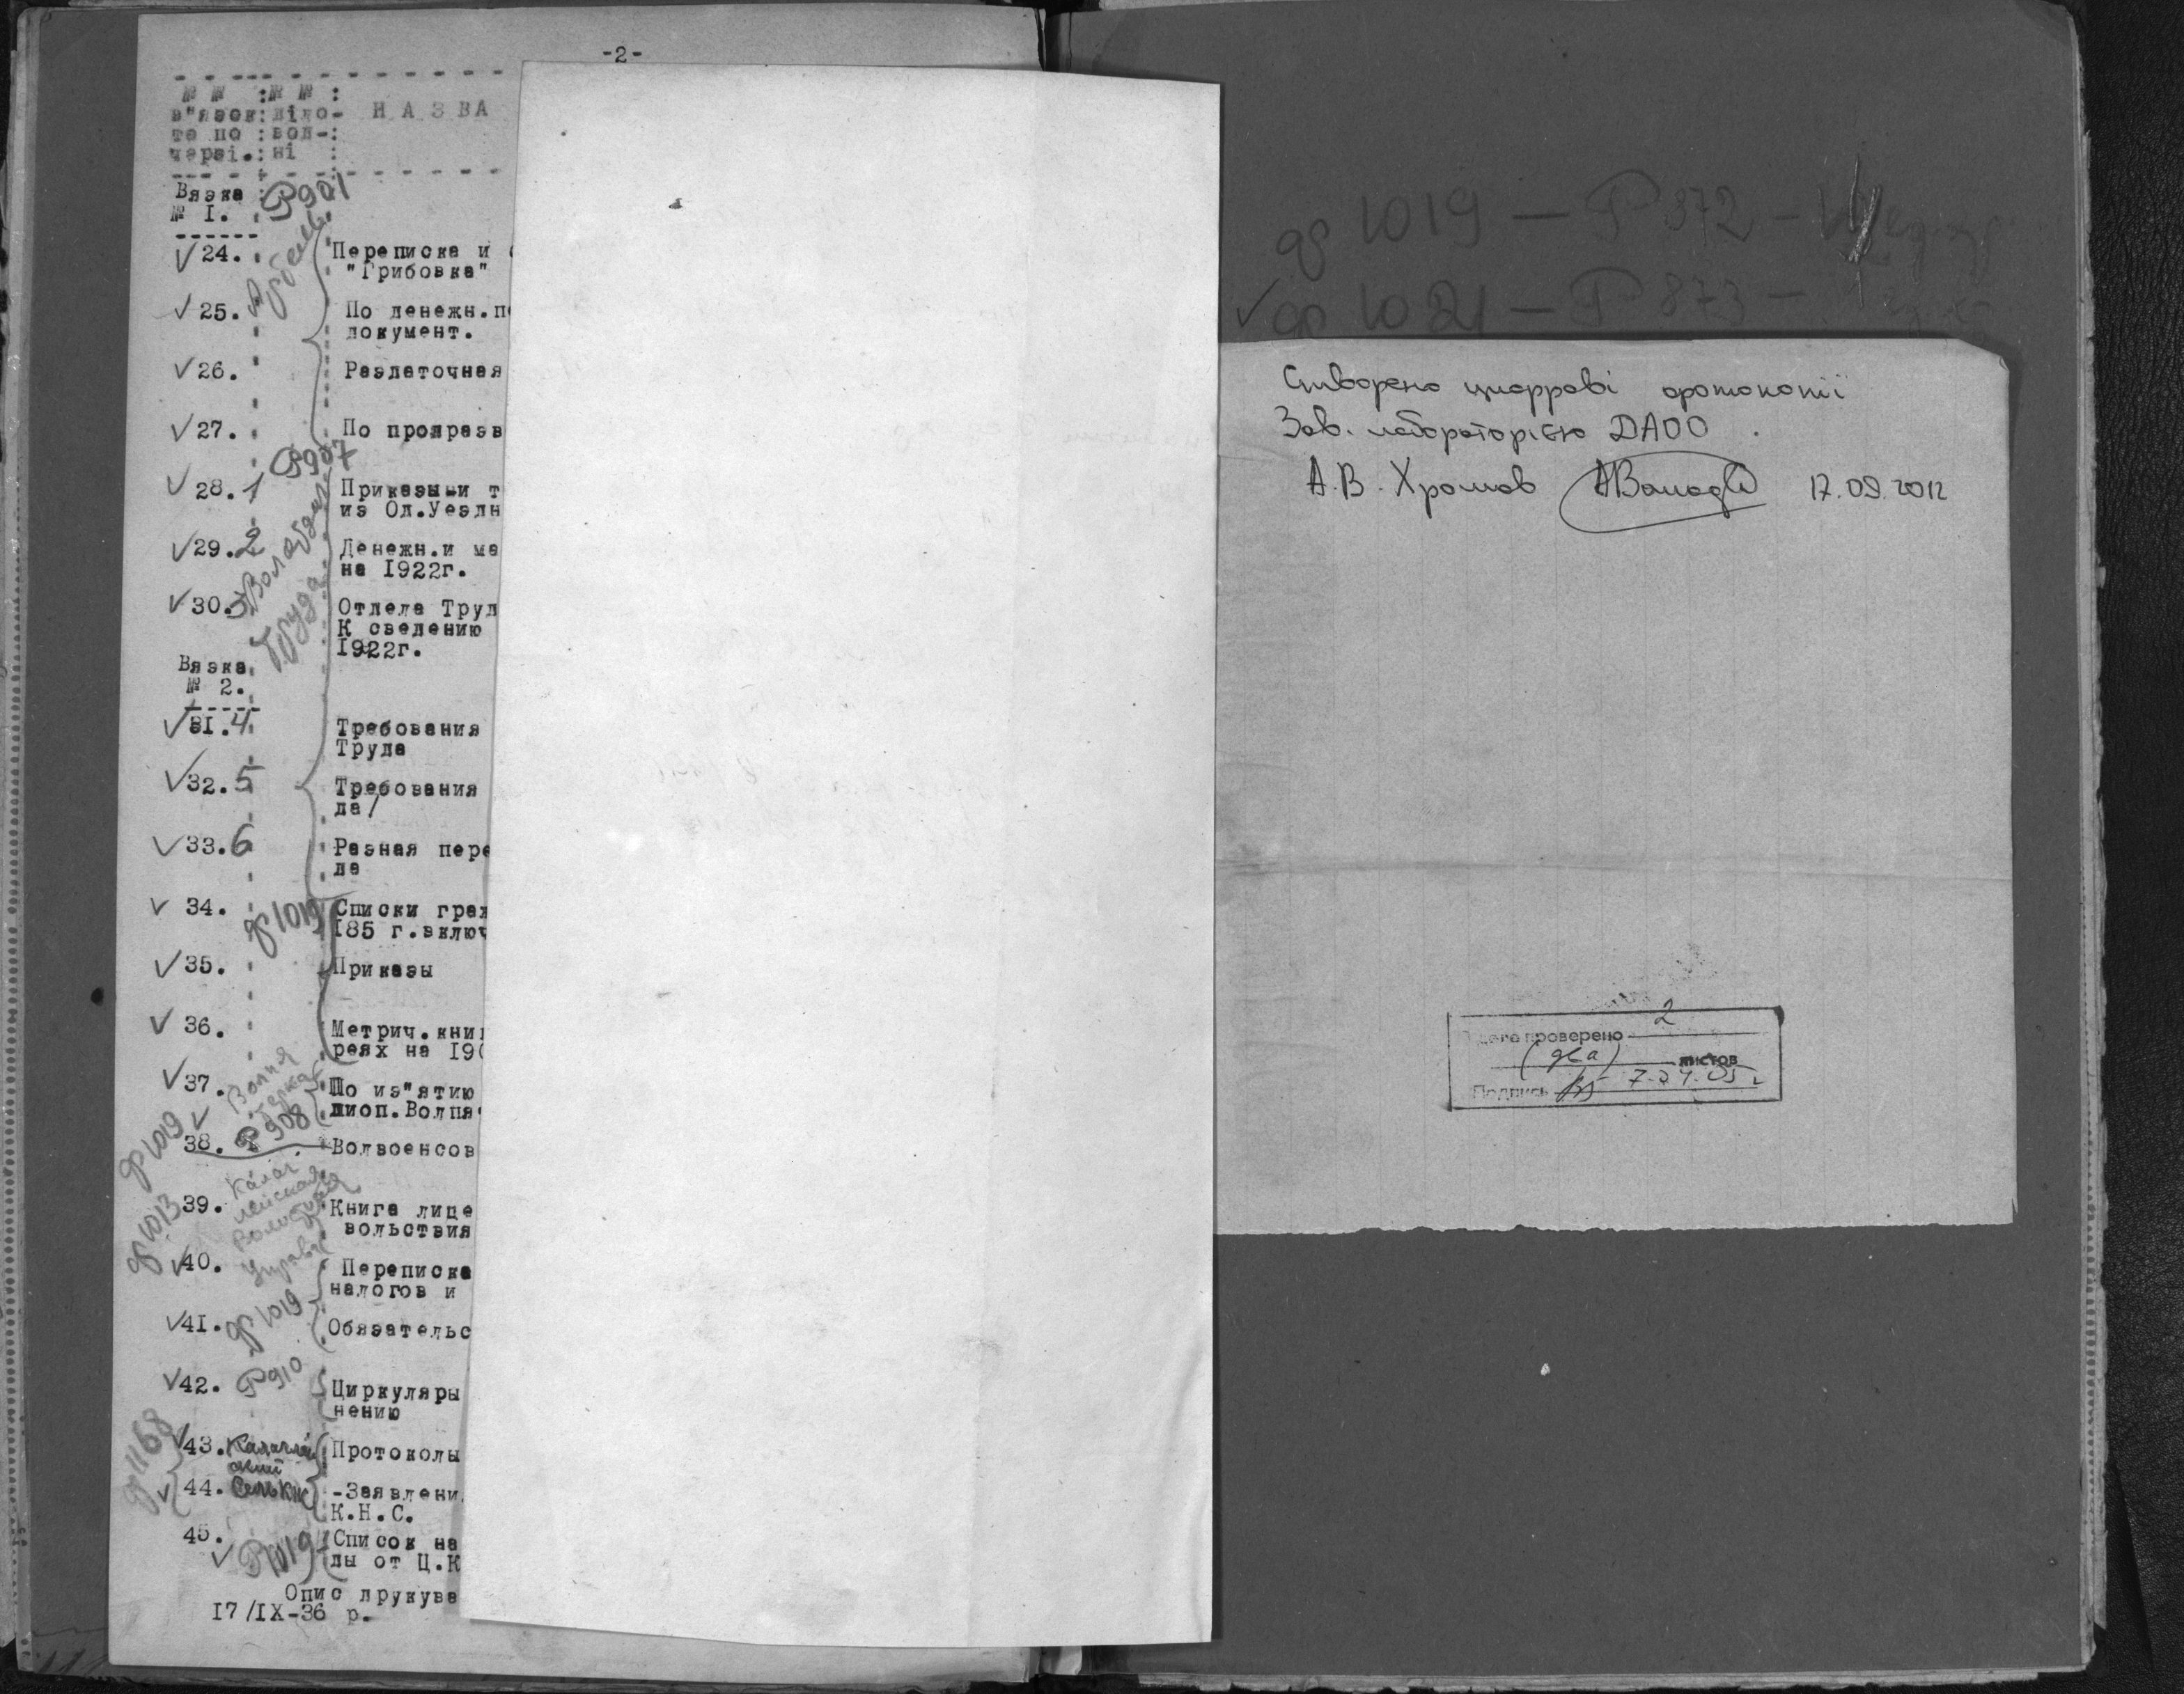 -2-
№ № :№ № :
в"язок:діло- НАЗВА
та по :вод-:
черзі.:ні :
Вязка Р901
№ I.
24. Переписка и
"Грибовка"
25. По денежн.п
документ.
26. Раздаточная
27. По продразв
Р907
28. 1 Приказыи т
из Од.Уездн
29. 2 Денежн.и ма
на I922г.
30. 3 Отдела Труд
К сведению
I922г.
Волотдел
Труда
Вязка
№ 2.
3I. 4 Требования
Труда
32. 5 Требования
да/
33. 6 Разная пере
да
34. ф 1019 Списки граж
I85 г.включ
35. Приказы
36. Метрич.книг
реях на I90
37. По из"ятию
лиоп.Волпя
Р 908
ф 1019
38. Волвоенсов
ф 1013
39. Книга лице
вольствия
40. Переписка
налогов и
ф 1019
4I. Обязательс
42. Р910 Циркуляры
нению
ф 1168
43. Протоколы
44. -Заявлени
К.Н.С.
45. Р1019 Список на
лы от Ц.К
Опис друкува
I7/IX-36 р.
ф 1019 — Р 872 –
ф 1021 — Р 873 –
Створено цифрові фотокопії
Зав. лабораторією ДАОО
А.В. Хромов 17.09.2012
проверено 2
(два) листов
Подпись 7.04.05 г